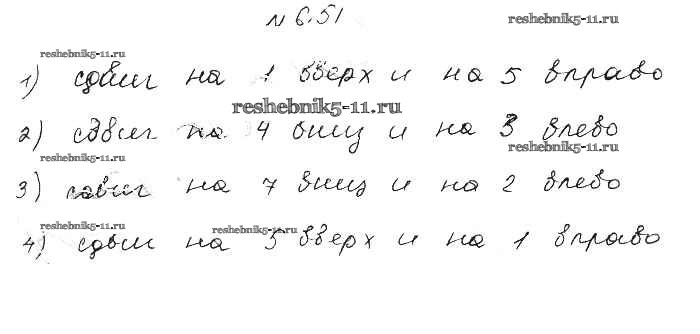 N 6.51
reshebnik5-11.ru
reshebnik5-11.ru
1) сдвиг на 1 вверх и на 5 вправо
reshebnik5-11.ru
2) сдвиг на 4 вниз и на 3 влево
reshebnik5-11.ru
reshebnik5-11.ru
3) сдвиг на 7 вниз и на 2 влево
reshebnik5-11.ru
reshebnik5-11.ru
4) сдвиг на 5 вверх и на 1 вправо